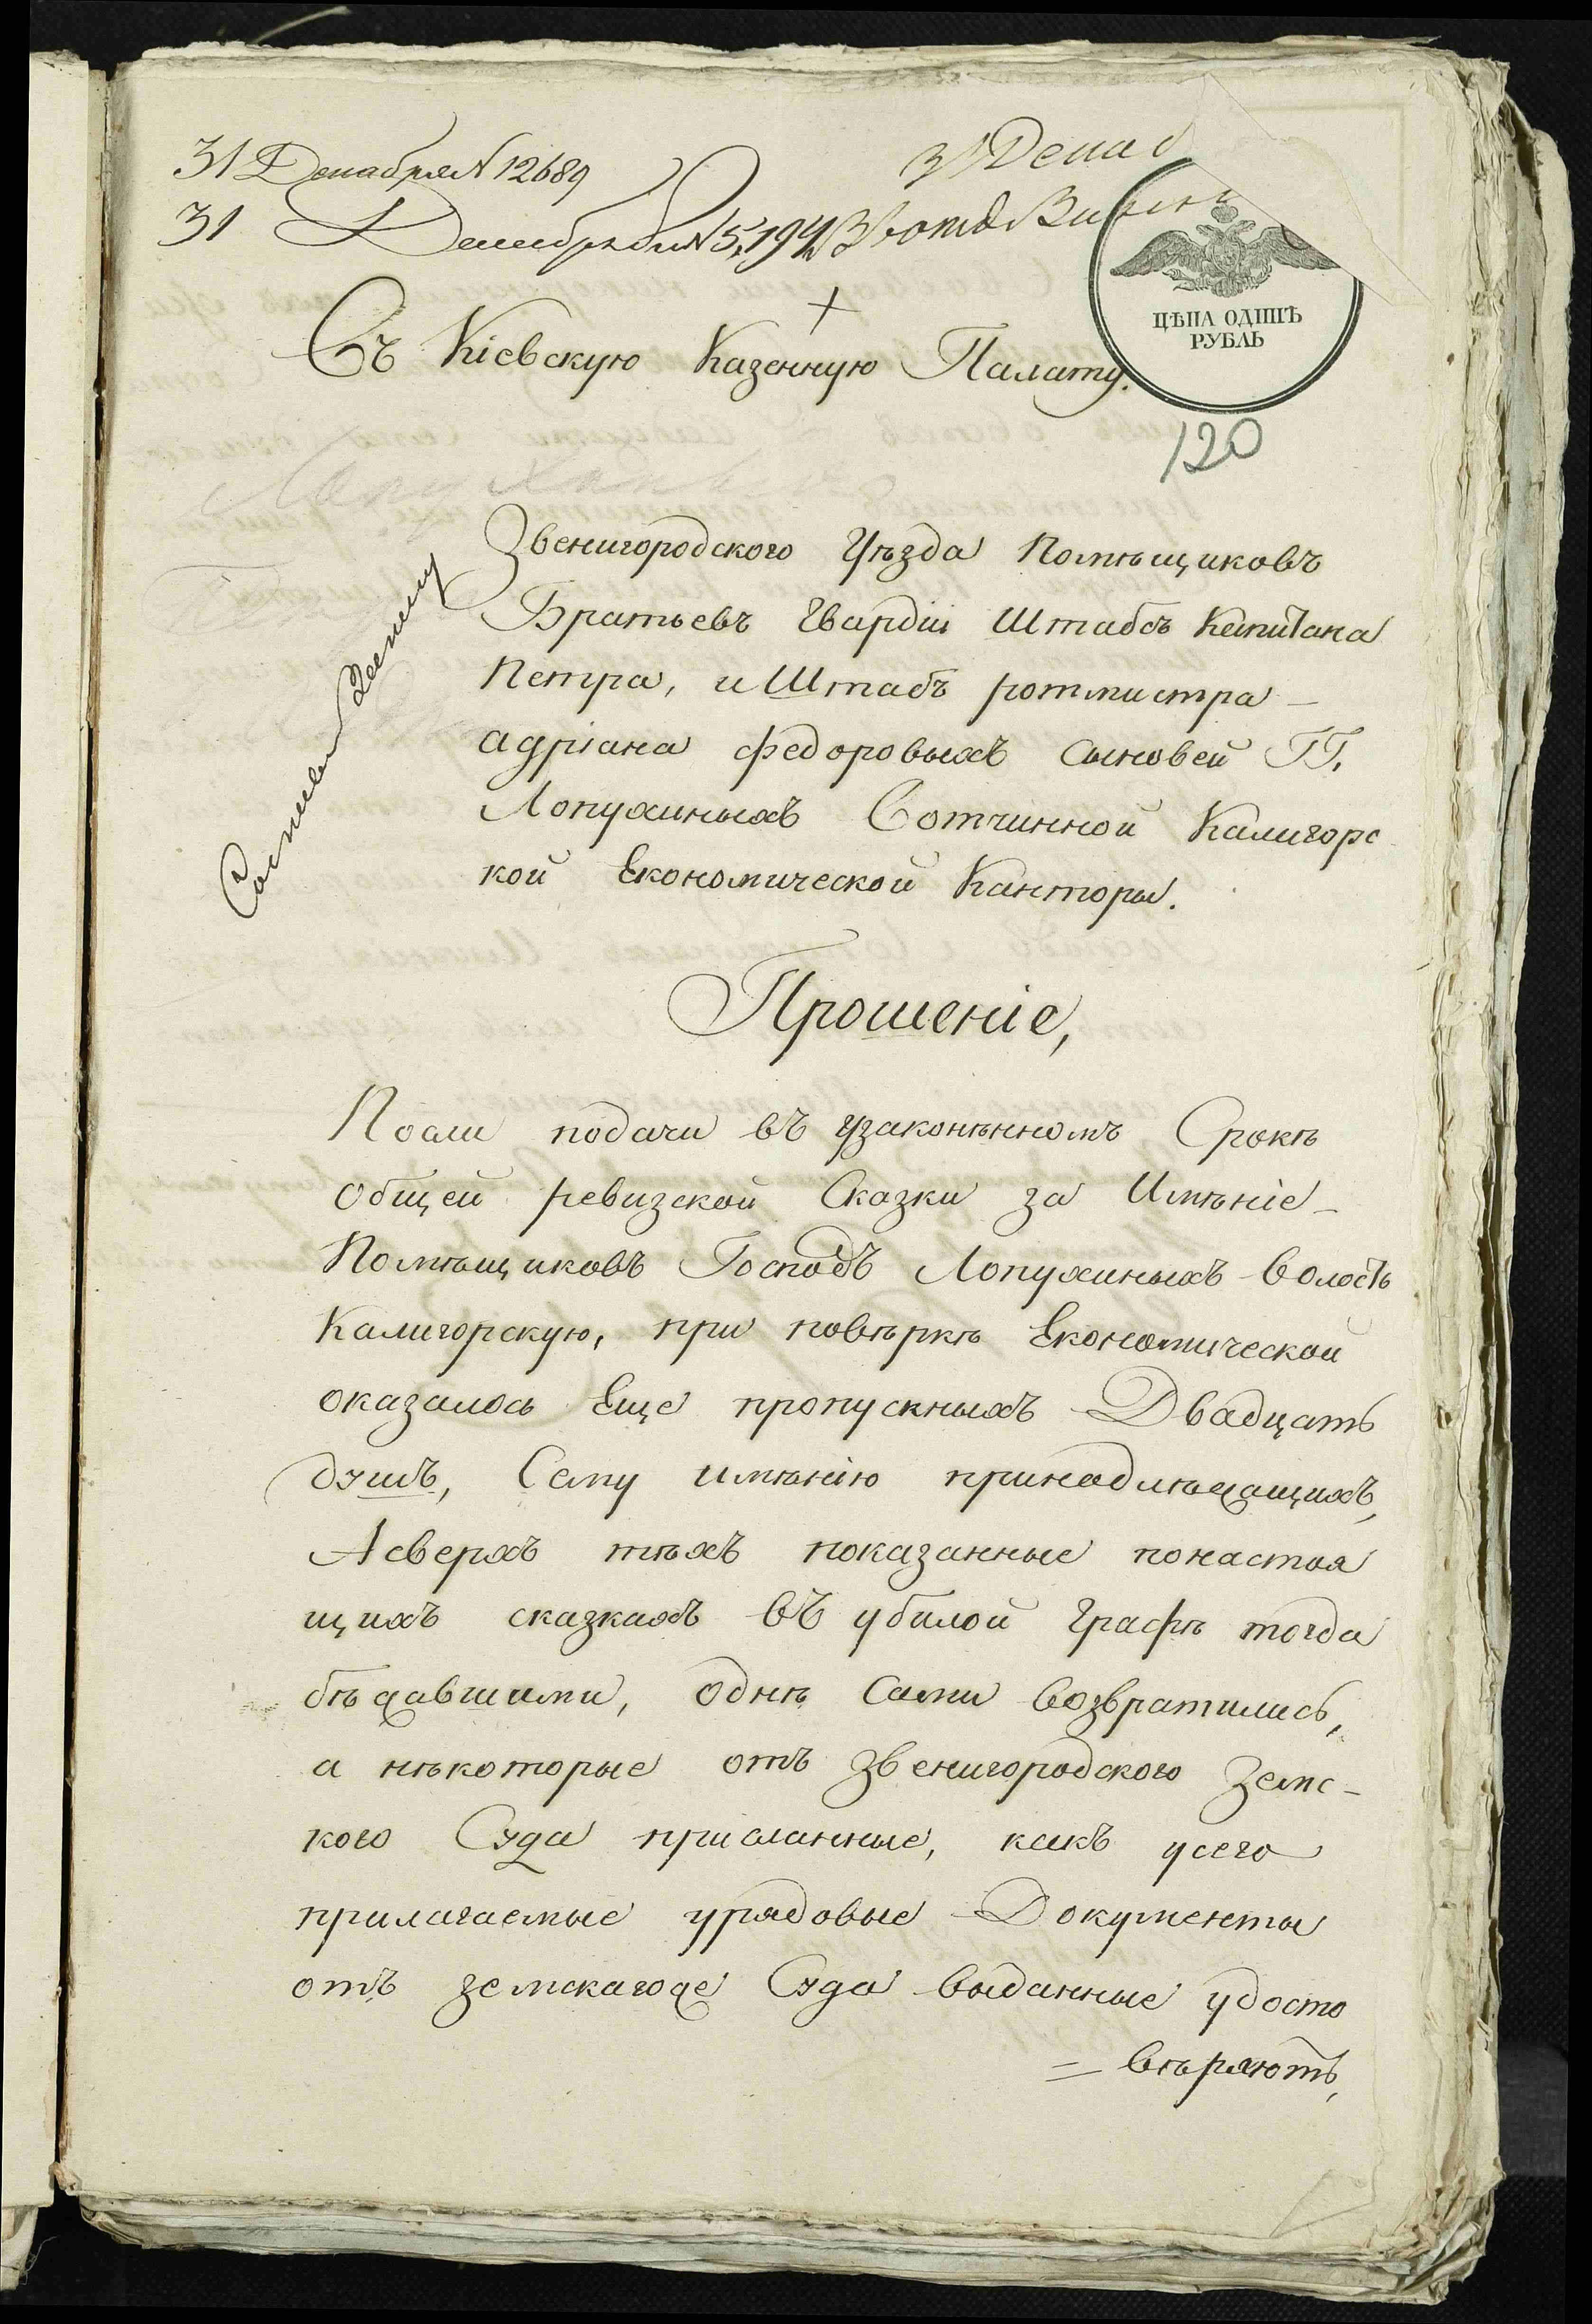 31 Декабря № 12689
31 Декабря № 5,194
31 Декаб
ЦѢНА ОДИНЪ
РУБЛЬ
Въ Кіевскую Казенную Палату.
120
Звенигородского Уѣзда Помѣщиковъ
Братьевъ Гвардіи Штабсъ Капитана
Петра, и Штабъ ротмистра –
адріана федоровыхъ сыновей ГГ.
Лопухиныхъ Вотчинной Калигорс
кой Економической Канторы.
Прошеніе,
Посли подачи въ узаконѣнномъ Срокѣ
общей ревизской Сказки за Имѣніе –
Помѣщиковъ Господъ Лопухиныхъ волость
Калигорскую, при повѣркѣ Економической
оказалось Еще пропускныхъ Двадцать
душъ, Сему имѣнію принадлѣжащихъ,
А сверхъ тѣхъ показанные по настоя
щихъ сказкахъ въ убилой графѣ тогда
бѣжавшими, однѣ сами возвратились,
а нѣкоторые отъ Звенигородского Земс–
кого Суда присланные, какъ у сего
прилагаемые урядовые Документы
отъ земскагоже Суда выданные удосто
= вѣряютъ,